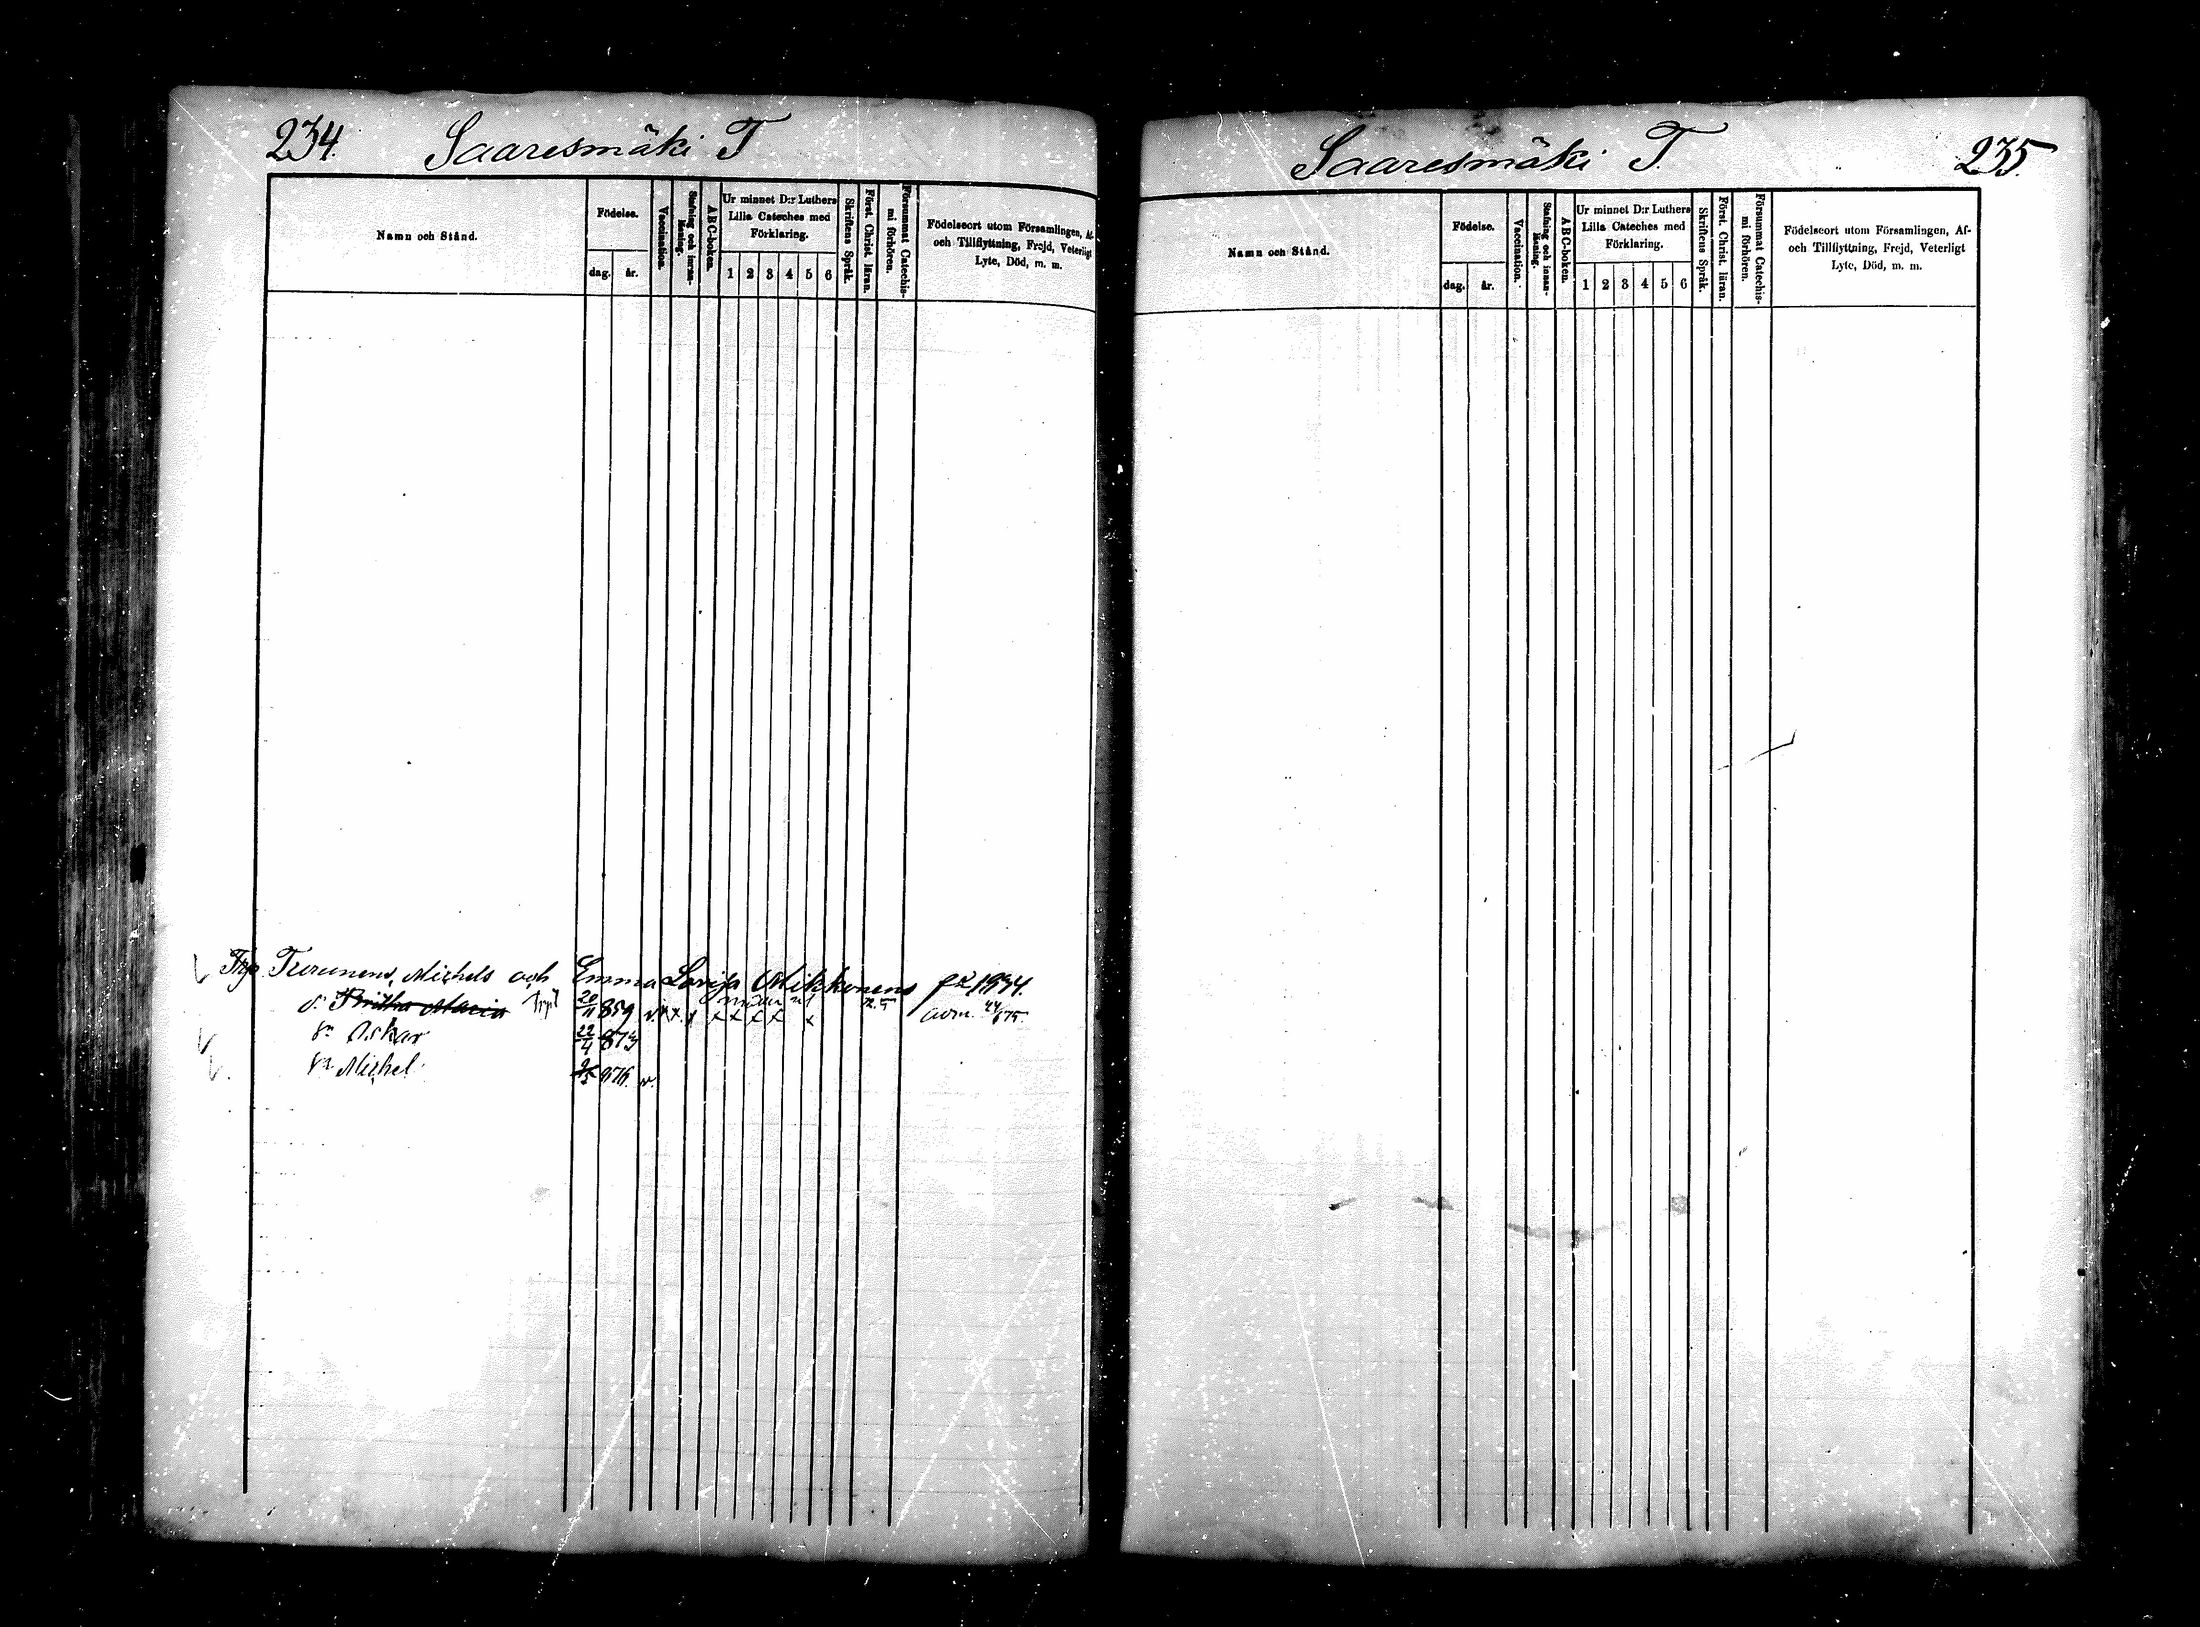 234. Saaresmäki T
Namn och Stånd.
Födelse.
dag. år.
Vaccination.
Stafning och innan-läsning.
ABC-boken.
Ur minnet D:r Luthers
Lilla Cateches med
Förklaring.
1 2 3 4 5 6
Skriftens Språk.
Först. Christ. läran.
Försummat Catechis-
mi förhören.
Födelseort utom Församlingen, Af-
och Tillflyttning, Frejd, Veterligt
Lyte, Död, m. m.
Michels och Emma Lovisa Mikkonens
Britha Maria 20/11 859 v. x x x x x x x
Sn Oskar 22/4 873
Sn Michel v.
Saaresmäki T. 235.
Namn och Stånd.
Födelse.
dag. år.
Vaccination.
Stafning och innan-läsning.
ABC-boken.
Ur minnet D:r Luthers
Lilla Cateches med
Förklaring.
1 2 3 4 5 6
Skriftens Språk.
Först. Christ. läran.
Försummat Catechis-
mi förhören.
Födelseort utom Församlingen, Af-
och Tillflyttning, Frejd, Veterligt
Lyte, Död, m. m.